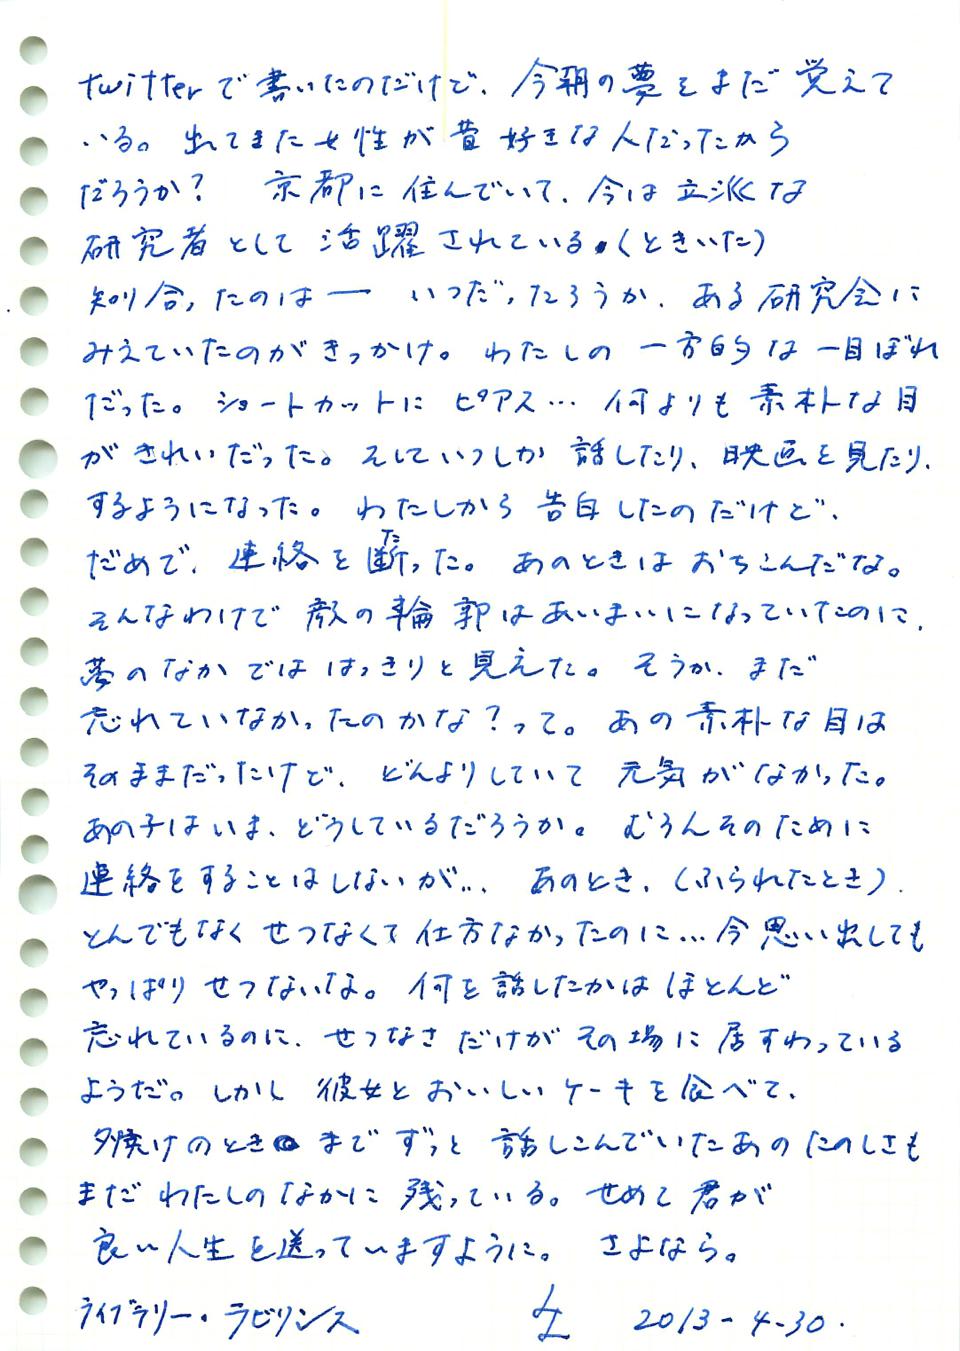 twitterで書いたのだけど、今朝の夢をまだ覚えて
いる。出てきた女性が昔好きな人だったから
だろうか? 京都に住んでいて、今は立派な
研究者として活躍されている。(ときいた)
知り合ったのは— いつだったろうか、ある研究会に
みえていたのがきっかけ。わたしの一方的な一目ぼれ
だった。ショートカットにピアス… 何よりも素朴な目
がきれいだった。そしていつしか話したり、映画を見たり、
するようになった。わたしから告白したのだけど、
だめで、連絡を断(た)った。あのときはおちこんだな。
そんなわけで顔の輪郭はあいまいになっていたのに、
夢のなかでははっきりと見えた。そうか、まだ
忘れていなかったのかな?って。あの素朴な目は
そのままだったけど、どんよりしていて元気がなかった。
あの子はいま、どうしているだろうか。むろんそのために
連絡をすることはしないが... あのとき、(ふられたとき)、
とんでもなくせつなくて仕方なかったのに...今思い出しても
やっぱりせつないな。何を話したかはほとんど
忘れているのに、せつなさだけがその場に居すわっている
ようだ。しかし彼女とおいしいケーキを食べて、
夕焼けのときまでずっと話しこんでいたあのたのしさも
まだわたしのなかに残っている。せめて君が
良い人生を送っていますように。さよなら。
ライブラリー・ラビリンス 2013-4-30.